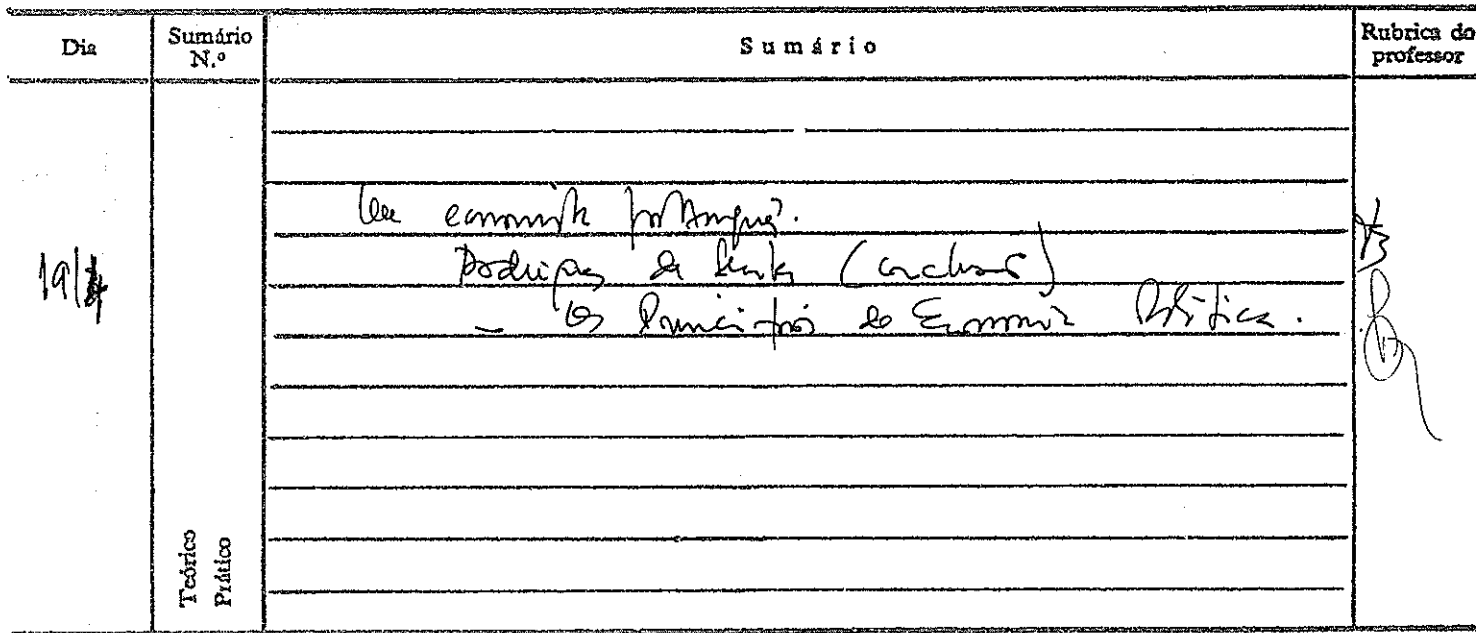 Dia
Sumário N.º
Sumário
Rubrica do professor
19/
Um economista português.
Rodrigues de (conclusão)
— Os Princípios de Economia Política.
Teórico
Prático